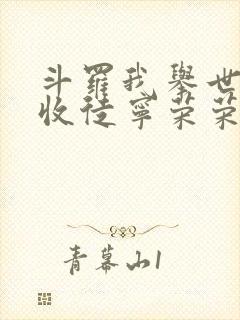 斗羅我舉世
收徒寧榮榮
青幕山1